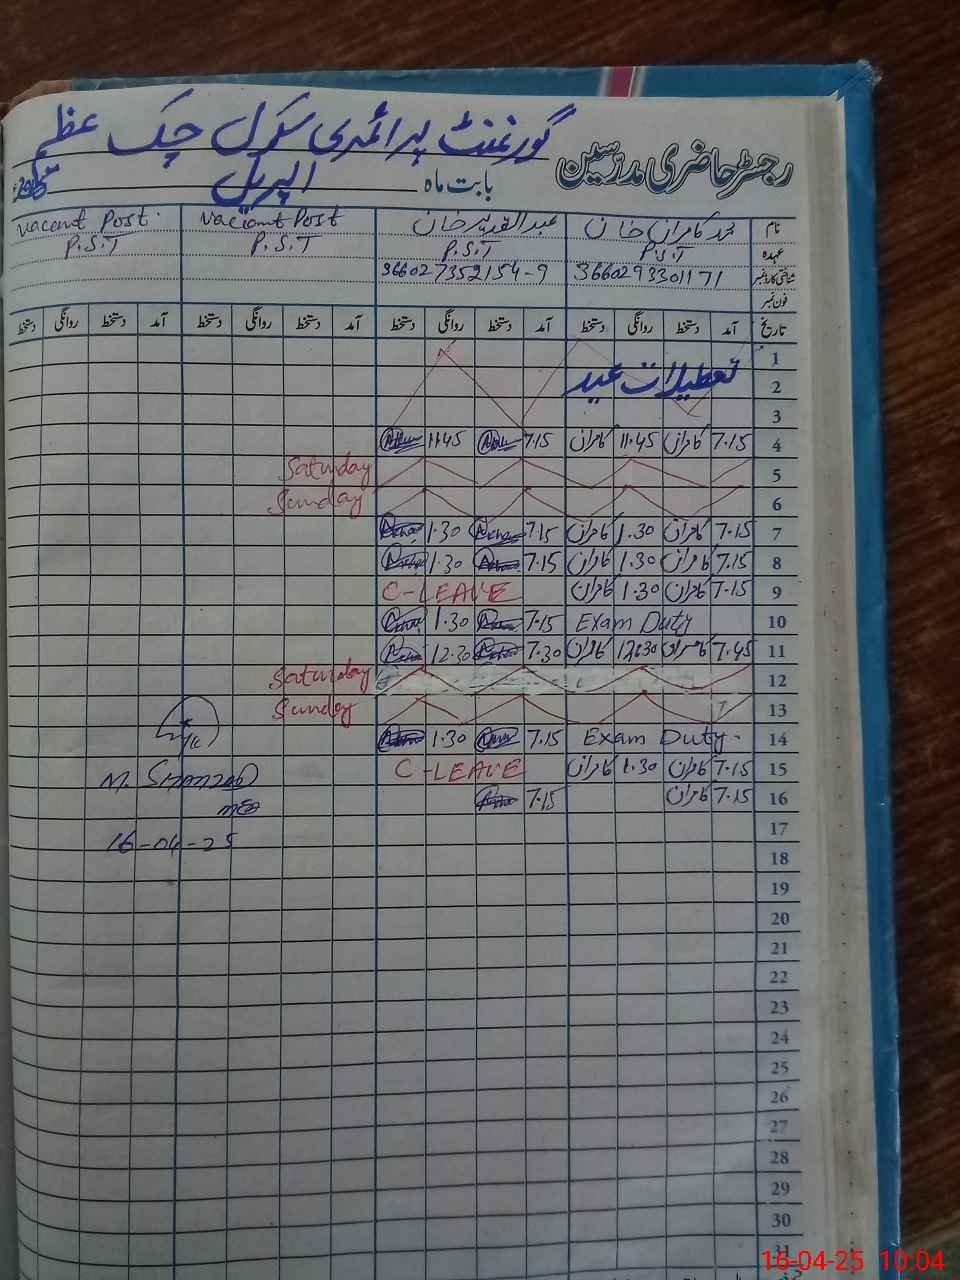 گورنمنٹ پرائمری سکول چک عظیم
رجسٹر حاضری مدرسین
بابت ماہ اپریل 2025ء
نام محمد کامران خان عبدالقدیر خان Vacant Post. Vacant Post
عہدہ P.S.T P.S.T P.S.T P.S.T
شناختی کارڈ نمبر 3660293301171 366027352154-9
فون نمبر
تاریخ آمد دستخط روانگی دستخط آمد دستخط روانگی دستخط آمد دستخط روانگی دستخط آمد دستخط روانگی دستخط
1
2 تعطیلات عید
3
4 7.15 کامران 11.45 کامران 7.15 11.45
5 Saturday
6 Sunday
7 7.15 کامران 1.30 کامران 7.15 1.30
8 7.15 کامران 1.30 کامران 7.15 1.30
9 7.15 کامران 1.30 کامران C-LEAVE
10 Exam Duty 7.15 1.30
11 7.45 کامران 12.30 کامران 7.30 12.30
12 Saturday
13 Sunday
14 Exam Duty. 7.15 1.30
15 7.15 کامران 1.30 کامران C-LEAVE
16 7.15 کامران 7.15
M. Shahzad
16-04-25
17
18
19
20
21
22
23
24
25
26
27
28
29
30
31
16-04-25 10:04